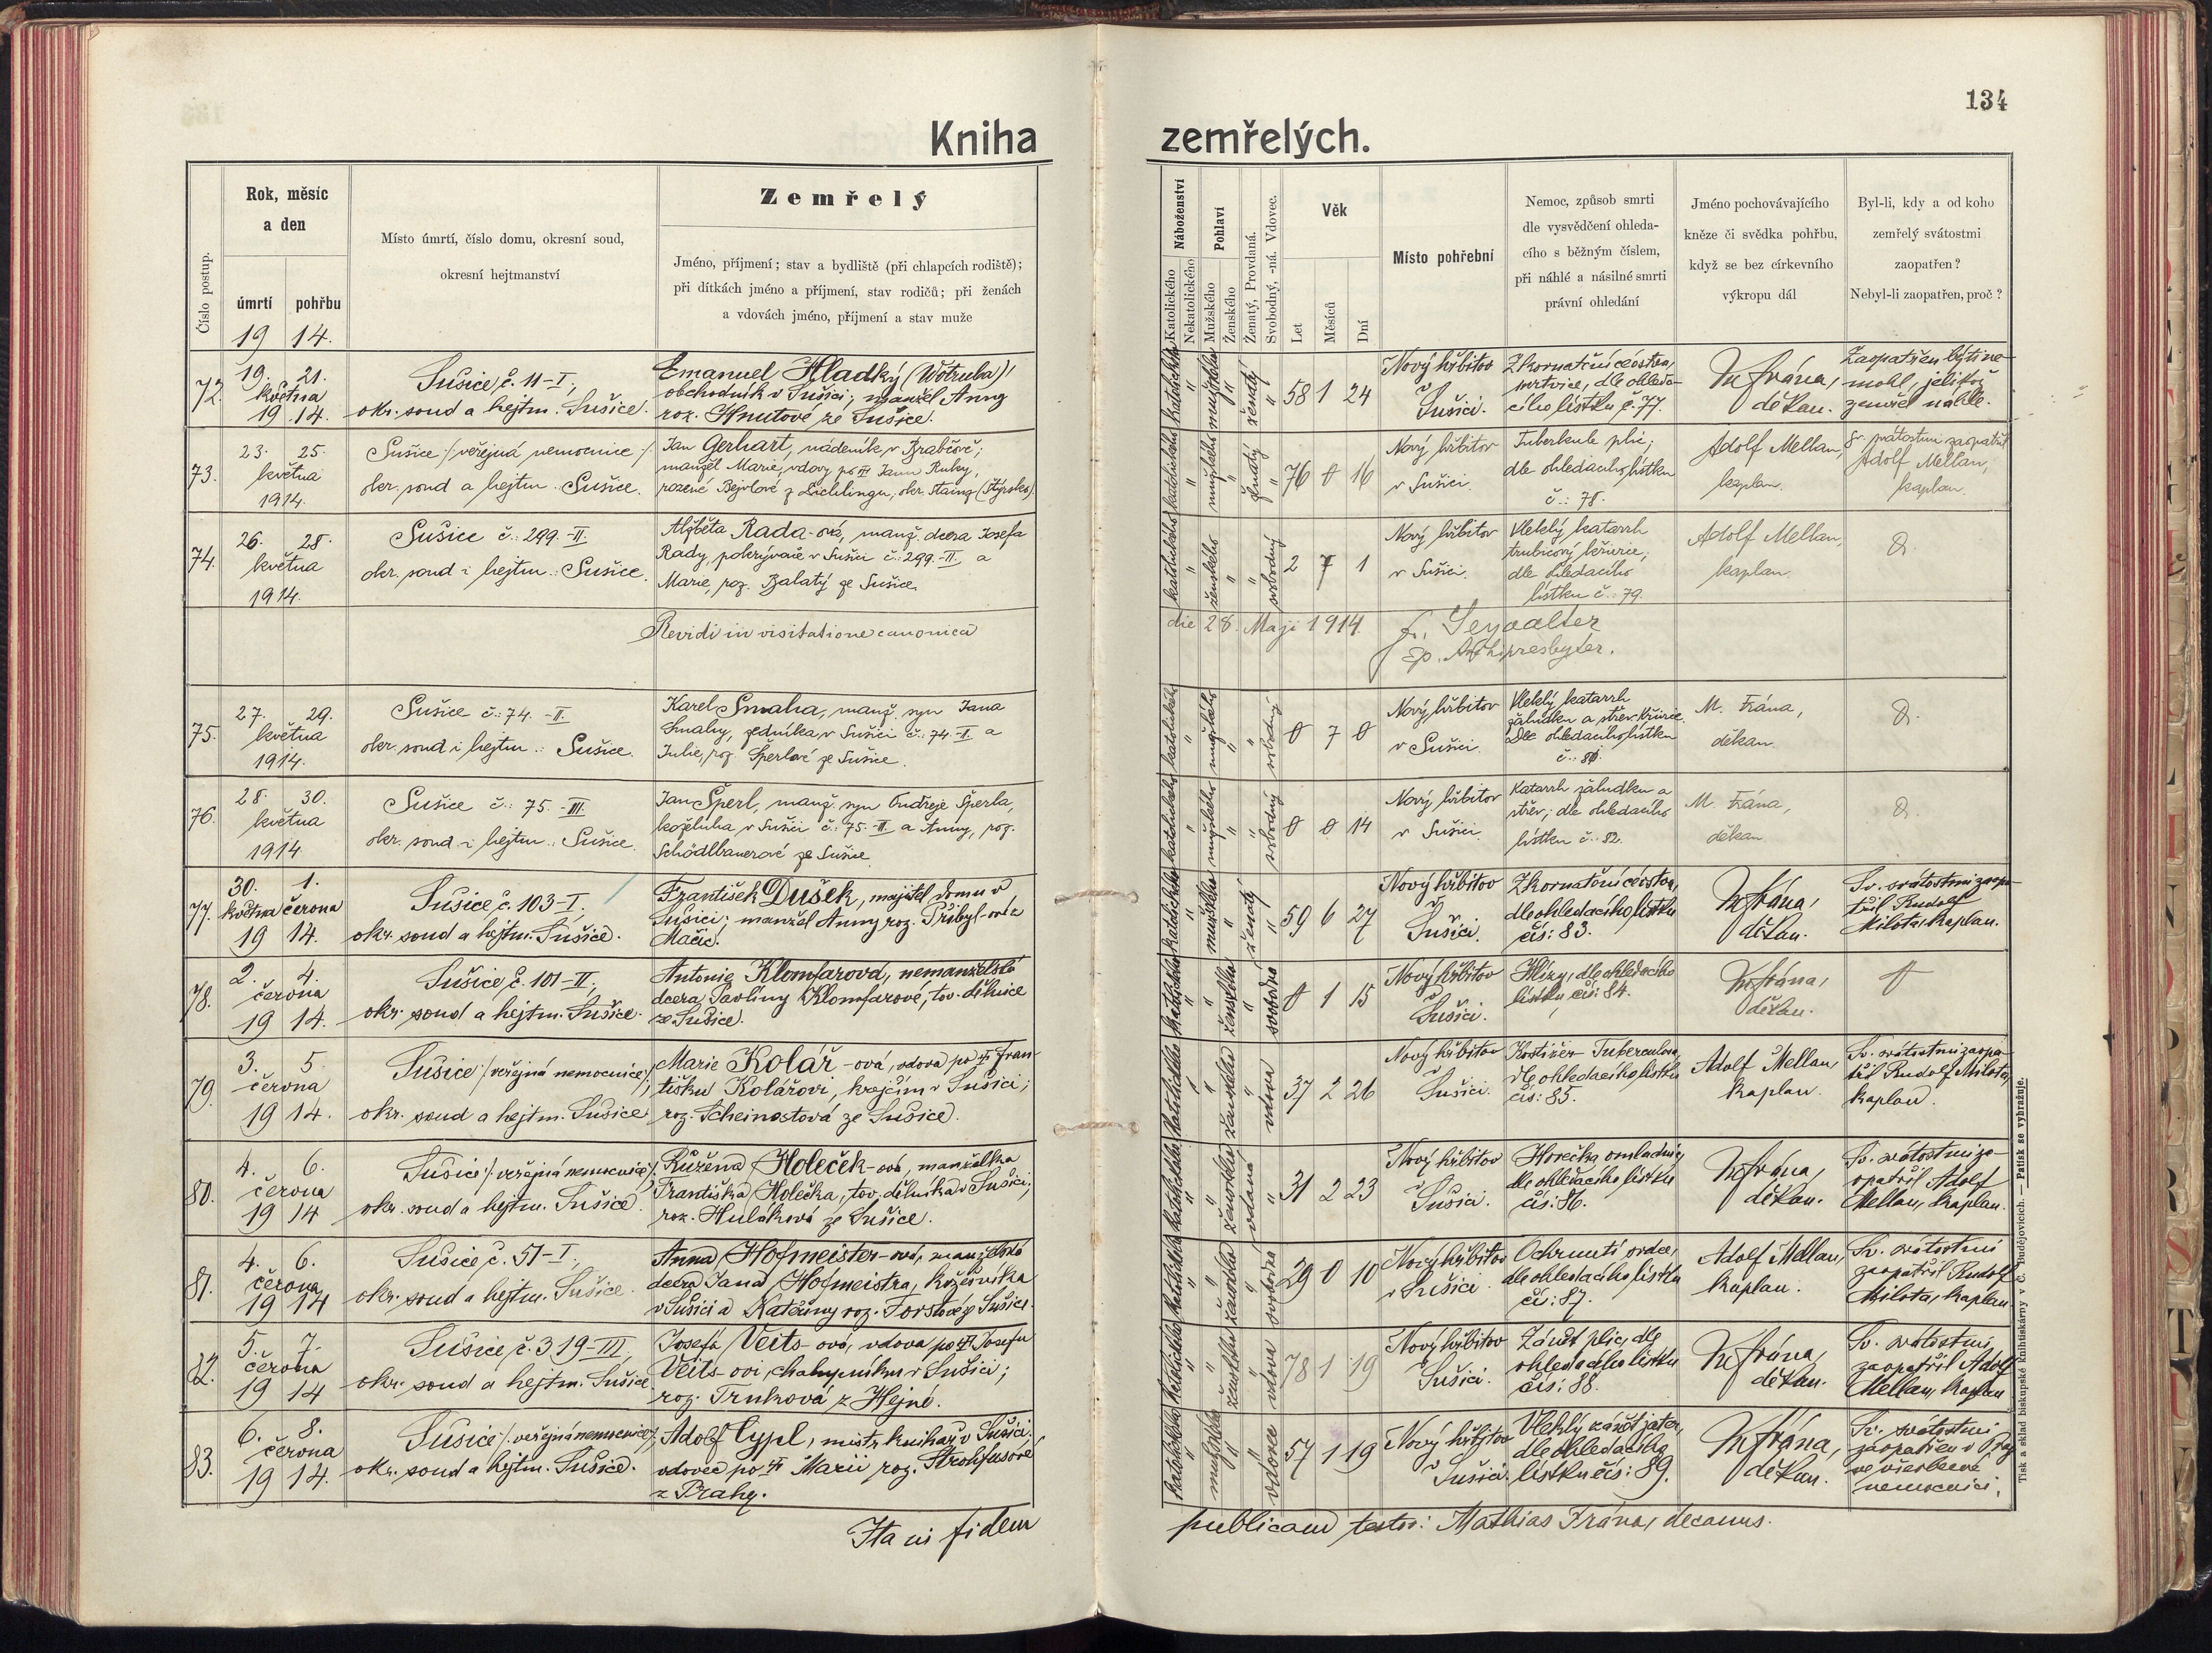 134
Kniha zemřelých.
Číslo postup.
Rok, měsíc
a den
úmrtí pohřbu
19 14.
Místo úmrtí, číslo domu, okresní soud,
okresní hejtmanství
Zemřelý
Jméno, příjmení; stav a bydliště (při chlapcích rodiště);
při dítkách jméno a příjmení, stav rodičů; při ženách
a vdovách jméno, příjmení a stav muže
Náboženství
Katolického
Nekatolického
Pohlaví
Mužského
Ženského
Ženatý, Provdaná.
Svobodný, -ná. Vdovec.
Věk
Let
Měsíců
Dní
Místo pohřební
Nemoc, způsob smrti
dle vysvědčení ohleda-
cího s běžným číslem,
při náhlé a násilné smrti
právní ohledání
Jméno pochovávajícího
kněze či svědka pohřbu,
když se bez církevního
výkropu dál
Byl-li, kdy a od koho
zemřelý svátostmi
zaopatřen?
Nebyl-li zaopatřen, proč?
72.
19. 21.
května
19 14.
Sušice č. 11-I,
okr. soud a hejtm. Sušice.
Emanuel Hladký (Wotruba),
obchodník v Sušici; manžel Anny
roz. Hnutové ze Sušice.
katolické
mužské
ženatý
58 1 24
Nový hřbitov
v
Sušici.
Zkornatění céostva,
mrtvice, dle ohleda-
cího lístku č. 77.
M. Frána,
děkan.
Zaopatřen býti ne-
mohl, jelikož
zemřel náhle.
73.
23. 25.
května
1914.
Sušice /: veřejná nemocnice :/
okr. soud a hejtm. Sušice.
Jan Gerhart, nádeník v Brabčově;
manžel Marie, vdovy po III Janu Ruby,
rozené Bejvlové z Lichlingu, okr. Staing (Štýrsko).
katolického
mužského
ženatý
76 0 16
Nový hřbitov
v Sušici.
Tuberkule plic;
dle ohledacího lístku
č.: 78.
Adolf Mellan,
kaplan.
Sv. svátostmi zaopatřil
Adolf Mellan,
kaplan.
74.
26. 28.
května
1914.
Sušice č.: 299.-II.
okr. soud i hejtm.: Sušice.
Alžběta Rada-ová, manž. dcera Josefa
Rady, pokrývače v Sušici č.: 299.-II. a
Marie, roz. Balatý ze Sušice.
katolického
ženského
svobodný
2 7 1
Nový hřbitov
v Sušici.
Vleklý katarrh
trubicový křivice;
dle ohledacího
lístku č.: 79.
Adolf Mellan,
kaplan.
0.
Revidi in visitatione canonica die 28. Maji 1914.
Ep. Archipresbyter.
75.
27. 29.
května
1914.
Sušice č.: 74. -II.
okr. soud i hejtm.: Sušice.
Karel Smaha, manž. syn Jana
Smahy, zedníka v Sušici č.: 74-I. a
Julie, roz Šperlové ze Sušice.
katolického
mužského
svobodný
0 7 0
Nový hřbitov
v Sušici.
Vleklý katarrh
žaludku a střev. Křivice.
Dle ohledacího lístku
č.: 80.
M. Frána,
děkan.
0.
76.
28. 30.
května
1914.
Sušice č.: 75. -III.
okr. soud i hejtm.: Sušice.
Jan Šperl, manž. syn Ondřeje Šperla,
koželuha v Sušici č.: 75.-II. a Anny, roz.
Schödlbauerové ze Sušice
katolického
mužského
svobodný
0 0 14
Nový hřbitov
v Sušici.
Katarrh žaludku a
střev; dle ohledacího
lístku č.: 82.
M. Frána,
děkan.
0.
77.
30. 1.
května června
19 14.
Sušice č. 103-I.
okr. soud a hejtm. Sušice.
František Dušek, majitel domu v
Sušici; manžel Anny roz. Přibyl-ové z
Mačic.
katolické
mužské
ženatý
59 6 27
Nový hřbitov
v
Sušici.
Zkornatění céostva,
dle ohledacího lístku
čís: 83.
M. Frána,
děkan.
Sv. svátostmi zaopa-
třil Rudolf
Milota, kaplan.
78.
2. 4.
června
19 14.
Sušice, č. 101-II,
okr. soud a hejtm. Sušice.
Antonie Klomfarová, nemanželská
dcera Pavlíny Klomfarové, tov. dělnice
ze Sušice.
katolické
ženské
svobodná
0 1 15
Nový hřbitov
v
Sušici.
Hlízy, dle ohledacího
lístku, čís: 84.
M. Frána,
děkan.
0
79.
3. 5.
června
19 14.
Sušice /: veřejná nemocnice :/,
okr. soud a hejtm. Sušice
Marie Kolář-ová, vdova po † Fran-
tišku Kolářovi, krejčím v Sušici;
roz. Scheinostová ze Sušice.
katolické
ženské
vdova
37 2 26
Nový hřbitov
v
Sušici.
Kostižer Tuberculosa,
dle ohledacího lístku
čís: 85.
Adolf Mellan,
kaplan.
Sv. svátostmi zaopa-
třil Rudolf Milota,
kaplan.
80.
4. 6.
června
19 14
Sušice /: veřejná nemocnice :/
okr. soud a hejtm. Sušice.
Růžena Holeček-ová, manželka
Františka Holečka, tov. dělníka v Sušici;
roz. Huláková ze Sušice.
katolické
ženské
vdaná
31 2 23
Nový hřbitov
v
Sušici.
Horečka omladnic,
dle ohledacího lístku
čís: 86.
M. Frána,
děkan.
Sv. svátostmi za-
opatřil Adolf
Mellan, kaplan.
81.
4. 6.
června
19 14
Sušice č. 51-I,
okr. soud a hejtm. Sušice.
Anna Hofmeister-ová, manželská
dcera Jana Hofmeistra, kožešníka
v Sušici a Kateřiny roz. Forstové ze Sušice.
katolické
ženské
svobodná
29 0 10
Nový hřbitov
v Sušici.
Ochrnutí srdce,
dle ohledacího lístku
čís: 87.
Adolf Mellan,
kaplan.
Sv. svátostmi
zaopatřil Rudolf
Milota, kaplan.
82.
5. 7.
června
19 14
Sušice, č. 319-III,
okr. soud a hejtm. Sušice
Josefa Veits-ová, vdova po † Josefu
Veits-ovi, chalupníku v Sušici;
roz. Trnková z Hejné.
katolické
ženské
vdova
78 1 19
Nový hřbitov
v
Sušici.
Zánět plic, dle
ohledacího lístku
čís: 88.
M. Frána,
děkan.
Sv. svátostmi
zaopatřil Adolf
Mellan, kaplan
83.
6. 8.
června
19 14.
Sušice /: veřejná nemocnice :/,
okr. soud a hejtm. Sušice.
Adolf Cypl, mistr knihař v Sušici.
vdovec po † Marii roz. Strohfusové
z Prahy.
katolické
mužské
vdovec
57 1 19
Nový hřbitov
v
Sušici.
Vleklý zánět jater,
dle ohledacího
lístku čís: 89.
M. Frána,
děkan.
Sv. svátostmi
zaopatřen v Praze
ve všeobecné
nemocnici.
Ita in fidem publicam testor: Mathias Frána, decanus.
Tisk a sklad biskupské knihtiskárny v Č. Budějovicích. — Patisk se vyhražuje.